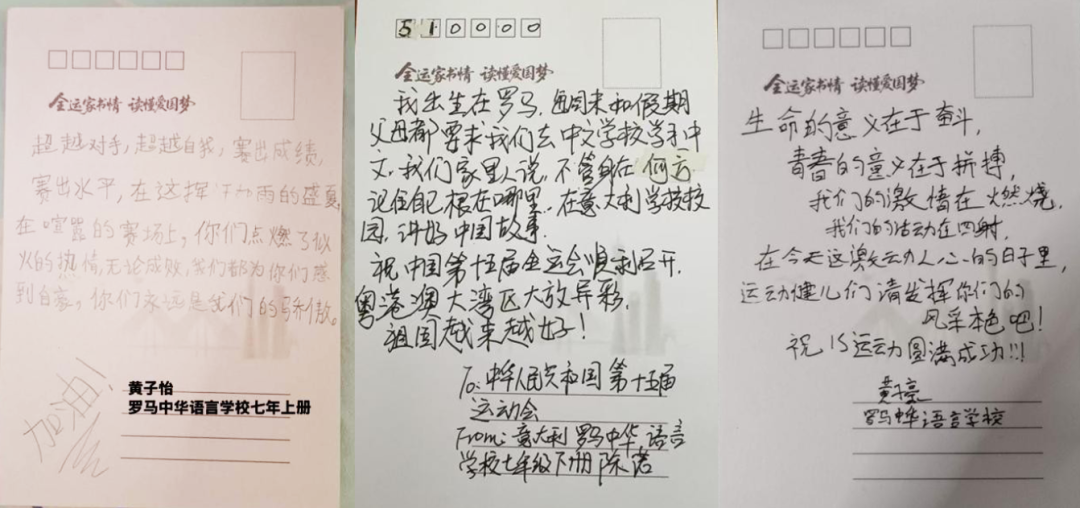 全运家书情 读懂爱国梦
超越对手，超越自我，赛出成绩，
赛出水平，在这挥汗如雨的盛夏，
在喧嚣的赛场上，你们点燃了似
火的热情，无论成败，我们都为你们感
到自豪，你们永远是我们的骄傲。
加油！
黄子怡
罗马中华语言学校七年上册
510000
全运家书情 读懂爱国梦
我出生在罗马，每周末和假期
父母都要求我们去中文学校学习中
文，我们家里人说，不管身在何方
记住自己根在哪里。在意大利学校校
园，讲好中国故事.
祝中国第十五届全运会顺利召开.
粤港澳大湾区大放异彩.
祖国越来越好！
To：中华人民共和国第十五届
运动会
From：意大利罗马中华语言
学校七年级下册 陈诺
全运家书情 读懂爱国梦
生命的意义在于奋斗，
青春的意义在于拼搏，
我们的激情在燃烧，
我们的活动在四射，
在今天这激动人心的日子里，
运动健儿们请发挥你们的
风采本色吧！
祝15运动圆满成功!!!
黄子亮
罗马中华语言学校